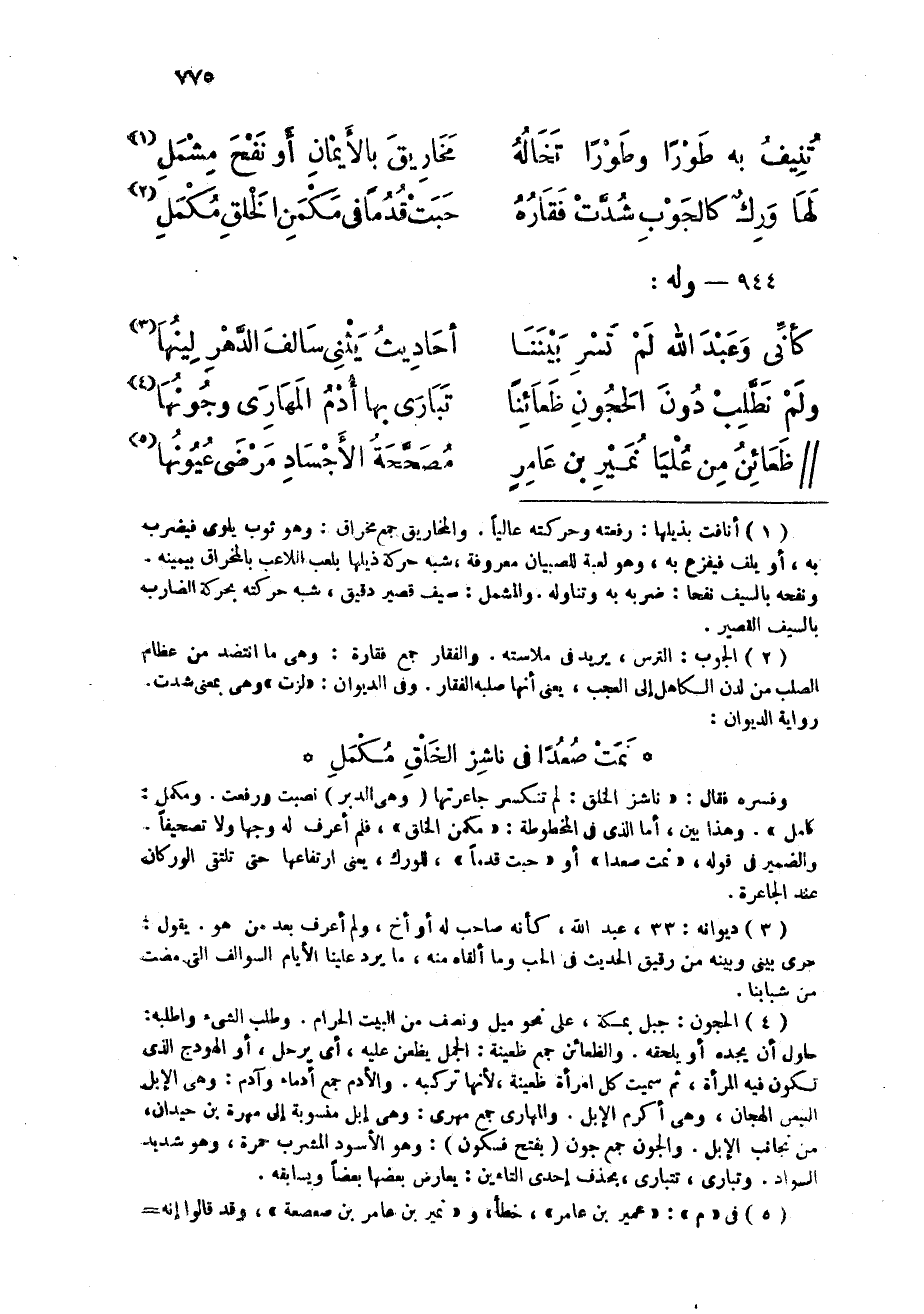 ٧٧٥
تُنِيفُ به طَوْرًا وطَوْرًا تَخَالُهُ مَخَارِيقَ بالأَيْمَانِ أَو نَفْحَ مِشْمَلِ (١)
لَهَا وَرِكٌ كالجَوْبِ شُدَّتْ فَقَارُهُ حَبَتْ قُدُمًا فى مَكْمَنِ الخَلْقِ مُكْمَلِ (٢)
٩٤٤ — وله :
كأَنِّى وَعَبْدَ الله لَمْ تَسْرِ بَيْنَنَا أحَادِيثُ يَثْنِى سَالفَ الدَّهْرِ لِينُهَا (٣)
ولَمْ نَطَّلِبْ دُونَ الحَجُونِ ظَعَائنًا تَبَارَى بها أُدْمُ المَهَارَى وجُونُهَا (٤)
// ظَعَائنُ مِن عُلْيَا نُمَيْرِ بن عَامِرٍ مُصَحَّحَةُ الأَجْسَادِ مَرْضَى عُيُونُها (٥)
( ١ ) أنافت بذيلها : رفعته وحركته عالياً . والمخاريق جمع مخراق : وهو ثوب يلوى فيضرب
به ، أو يلف فيفزع به ، وهو لعبة للصبيان معروفة ، شبه حركة ذيلها بلعب اللاعب بالمخراق بيمينه .
ونفحه بالسيف نفحا : ضربه به وتناوله . والمشمل : سيف قصير دقيق ، شبه حركته بحركة الضارب
بالسيف القصير .
( ٢ ) الجوب : الترس ، يريد فى ملاسته . والفقار جمع فقارة : وهى ما انتضد من عظام
الصلب من لدن الكاهل إلى العجب ، يعنى أنها صلبه الفقار . وفى الديوان : «لزت» وهى بمعنى شدت.
رواية الديوان :
* نَمَتْ صُعُدًا فى ناشِزِ الخَلْقِ مُكْمَلِ *
وفسره فقال : « ناشز الخلق : لم تنكسر جاعرتها ( وهى الدبر ) نصبت ورفعت . ومكمل :
كامل » . وهذا بين ، أما الذى فى المخطوطة : « مكمن الخلق » ، فلم أعرف له وجها ولا تصحيفاً .
والضمير فى قوله ، « نمت صعدا » أو « حبت قدماً » ، للورك ، يعنى ارتفاعها حتى تلتقى الوركان
عند الجاعرة .
( ٣ ) ديوانه : ٣٣ ، عبد الله ، كأنه صاحب له أو أخ ، ولم أعرف بعد من هو . يقول :
جرى بينى وبينه من رقيق الحديث فى الحب وما ألقاه منه ، ما يرد علينا الأيام السوالف التى مضت
من شبابنا .
( ٤ ) الحجون : جبل بمكة ، على نحو ميل ونصف من البيت الحرام . وطلب الشىء واطلبه:
حاول أن يجده أو يلحقه . والظعائن جمع ظعينة : الجمل يظعن عليه ، أى يرحل ، أو الهودج الذى
تكون فيه المرأة ، ثم سميت كل امرأة ظعينة ، لأنها تركبه . والأدم جمع أدماء وآدم : وهى الإبل
البيض الهجان ، وهى أكرم الإبل . والمهارى جمع مهرى : وهى إبل منسوبة إلى مهرة بن حيدان،
من نجائب الإبل . والجون جمع جون ( بفتح فسكون ) : وهو الأسود المشرب حمرة ، وهو شديد
السواد . وتبارى ، تتبارى ، بحذف إحدى التاءين : يعارض بعضها بعضاً ويسابقه .
( ٥ ) فى « م » : «عمير بن عامر» ، خطأ، و « نمير بن عامر بن صعصعة » ، وقد قالوا إنه =